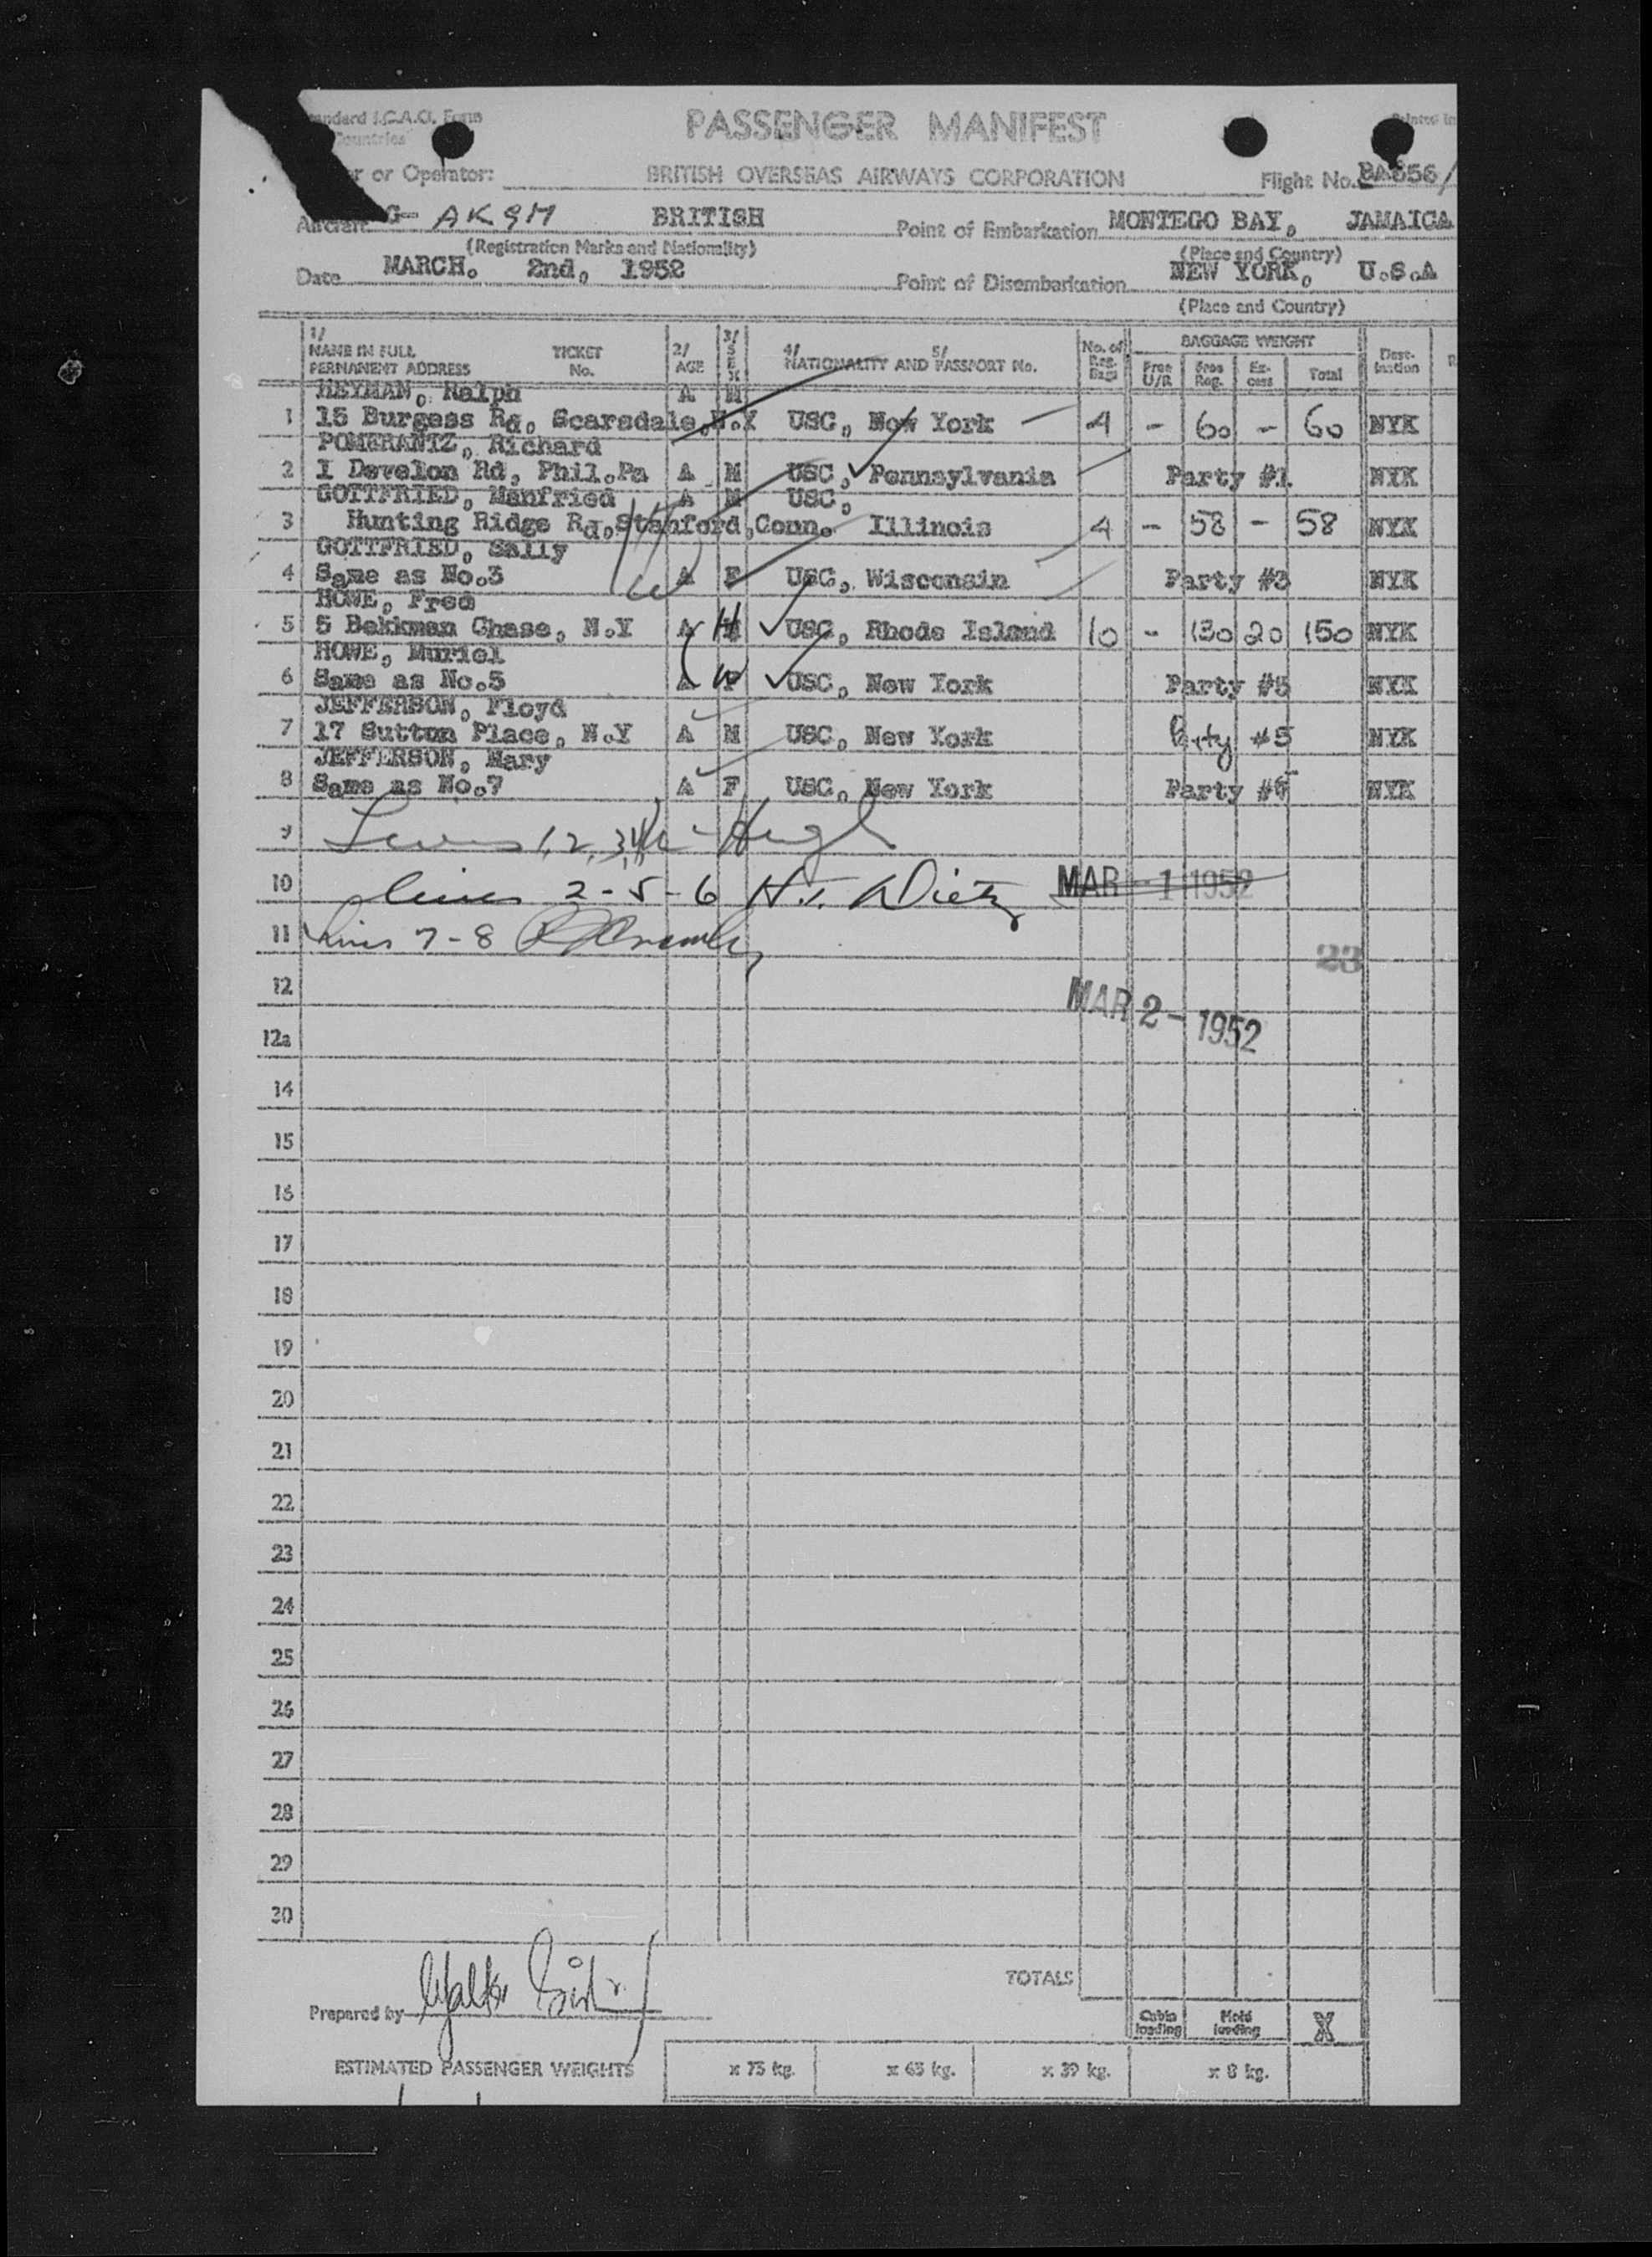 PASSENGER MANIFEST
or Operator: BRITISH OVERSEAS AIRWAYS CORPORATION Flight No. BA656/
Aircraft G- AKGM BRITISH Point of Embarkation MONTEGO BAY, JAMAICA
(Registration Marks and Nationality) (Place and Country)
Date MARCH. 2nd, 1952 Point of Disembarkation NEW YORK, U.S.A
(Place and Country)
1/ NAME IN FULL PERMANENT ADDRESS TICKET No. 2/ AGE 3/ SEX 4/ NATIONALITY AND 5/ PASSPORT No. No. of Reg. Bags BAGGAGE WEIGHT Free U/R Free Reg. Excess Total Destination
HEYMAN, Ralph A M
1 15 Burgess Rd, Scarsdale, N.Y USC, New York 4 - 60 - 60 NYK
POMERANTZ, Richard
2 1 Develon Rd, Phil.Pa A M USC, Pennsylvania Party #1 NYK
GOTTFRIED, Manfried A M USC,
3 Hunting Ridge Rd, Stanford, Conn. Illinois 4 - 58 - 58 NYK
GOTTFRIED, Sally
4 Same as No.3 A F USC, Wisconsin Party #3 NYK
HOWE, Fred
5 5 Bekkman Chase, N.Y A M USC, Rhode Island 10 - 130 20 150 NYK
HOWE, Muriel
6 Same as No.5 A F USC, New York Party #5 NYK
JEFFERSON, Floyd
7 17 Sutton Place, N.Y A M USC, New York Party #5 NYK
JEFFERSON, Mary
8 Same as No.7 A F USC, New York Party #5 NYK
9
10 lines 2-5-6 H.T. Dietz MAR -1 1952
11 lines 7-8
23
12 MAR 2- 1952
12a
14
15
16
17
18
19
20
21
22
23
24
25
26
27
28
29
30
TOTALS
Prepared by
Cabin loading Hold loading X
ESTIMATED PASSENGER WEIGHTS x 75 kg. x 65 kg. x 39 kg. x 8 kg.